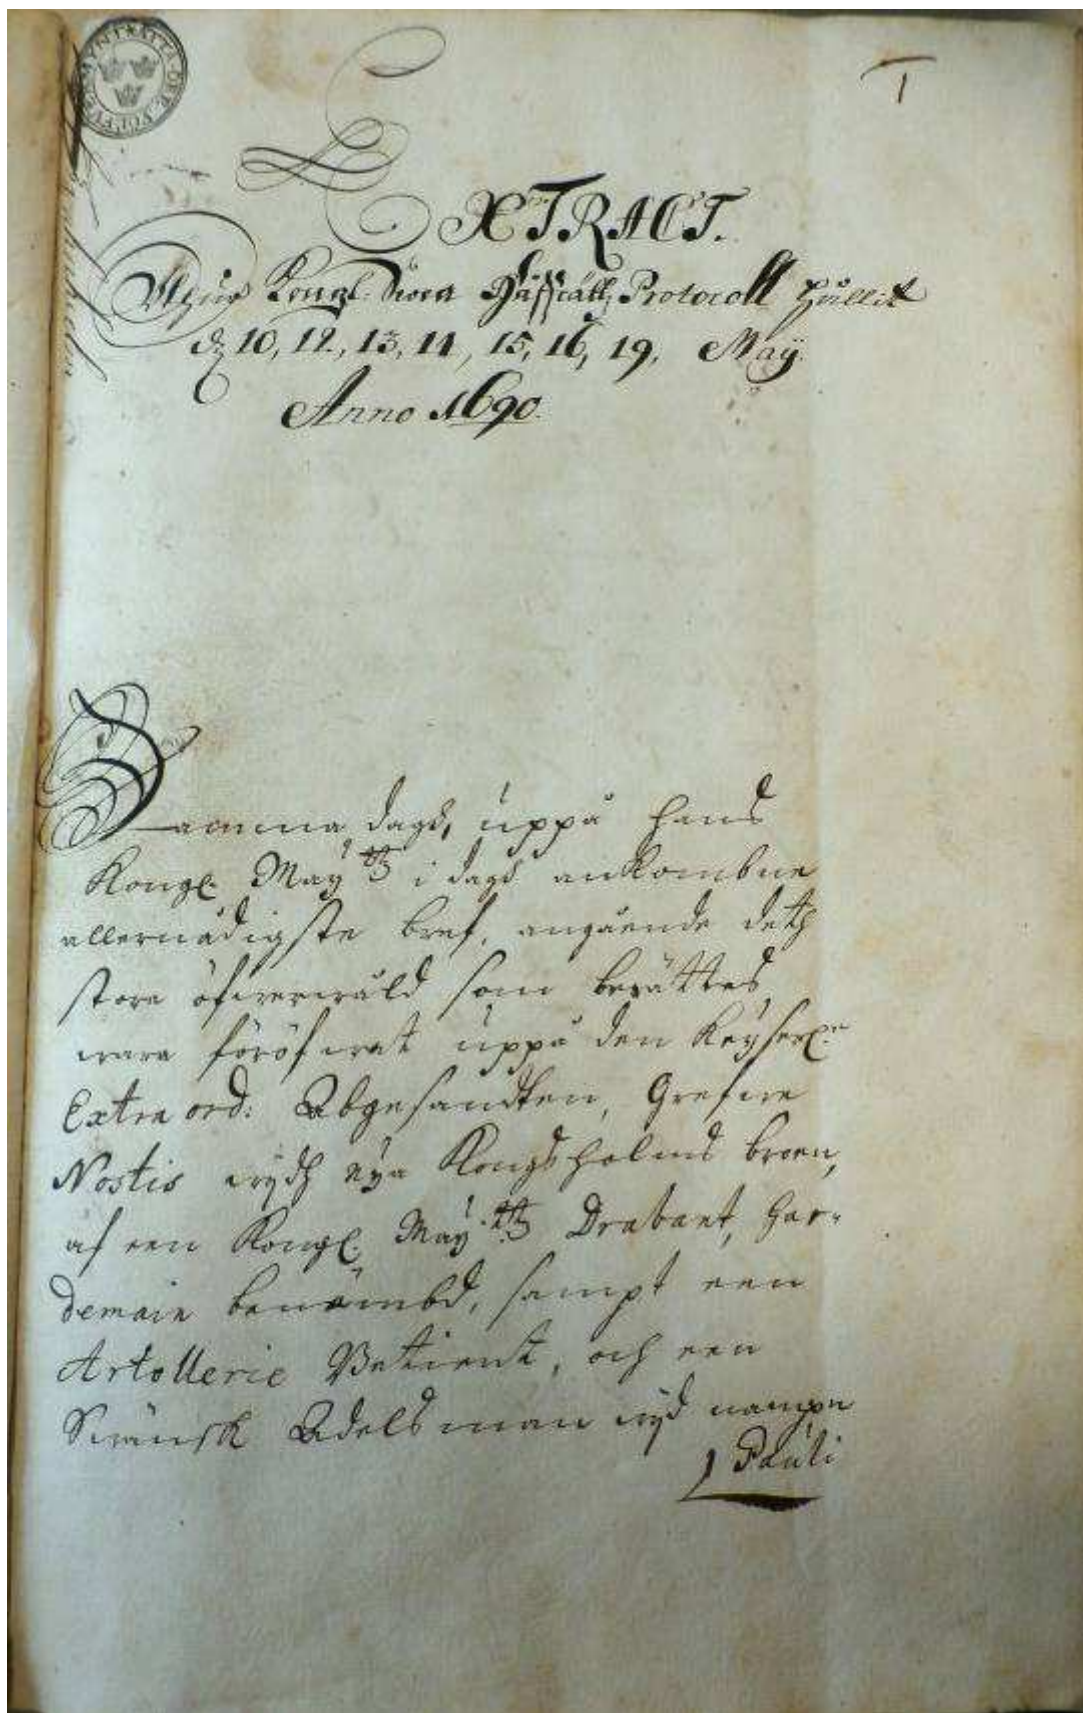 1
EXTRACT.
Uthur Kongl. Swea Håffrättz Protocoll hullit
dz 10, 12, 13, 14, 15, 16, 19, Maÿ.
Anno 1690.
Samma dagh, uppå hans
Kongl. Maÿ:ttz i dagh ankombne
allernådigste bref, angående deth
stora öfwerwåld som berättes
wara föröfwat uppå den Keÿserl:n
Extra ord: Abgesandten, Grefwe
Nostis widh nya Kongzholms broen,
af een Kongl. Maÿ:ttz Drabant, Har-
demain benämbd, sampt een
Artollerie Betient, och een
Swänsk Adelsman wid nampn
Pauli